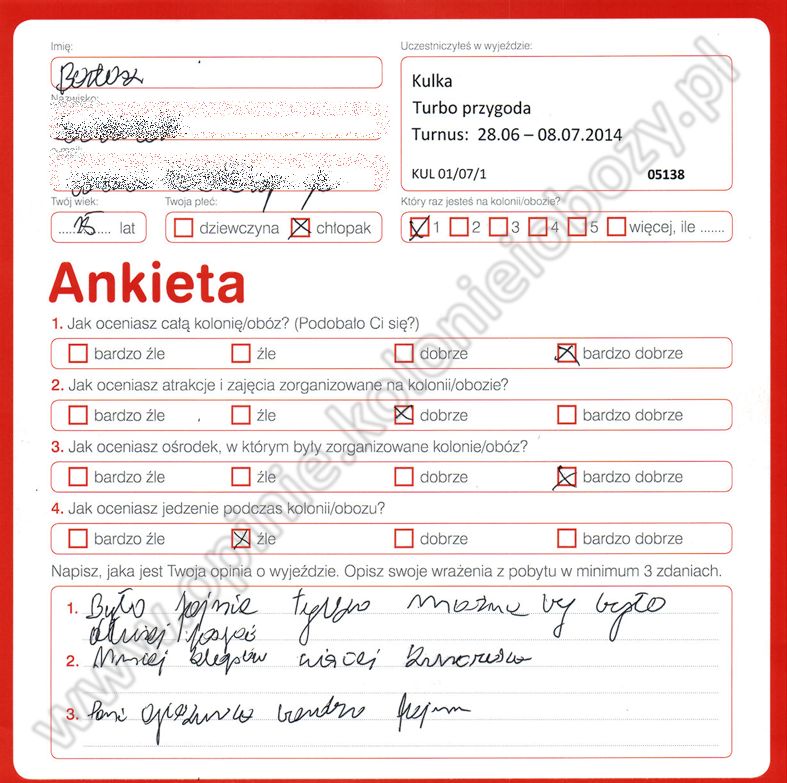 Imię:
Uczestniczyłeś w wyjeździe:
Bartosz
Kulka
Nazwisko:
Turbo przygoda
Turnus: 28.06 – 08.07.2014
KUL 01/07/1 05138
Twój wiek: Twoja płeć: Który raz jesteś na kolonii/obozie?
15 lat dziewczyna chłopak 1 2 3 4 5 więcej, ile .......
Ankieta
1. Jak oceniasz całą kolonię/obóz? (Podobało Ci się?)
bardzo źle źle dobrze bardzo dobrze
2. Jak oceniasz atrakcje i zajęcia zorganizowane na kolonii/obozie?
bardzo źle źle dobrze bardzo dobrze
3. Jak oceniasz ośrodek, w którym były zorganizowane kolonie/obóz?
bardzo źle źle dobrze bardzo dobrze
4. Jak oceniasz jedzenie podczas kolonii/obozu?
bardzo źle źle dobrze bardzo dobrze
Napisz, jaka jest Twoja opinia o wyjeździe. Opisz swoje wrażenia z pobytu w minimum 3 zdaniach.
1. Było fajnie tylko można by było
dłużej pospać
2. Mniej więcej
3. Pani bardzo
www.opinie.kolonieiobozy.pl